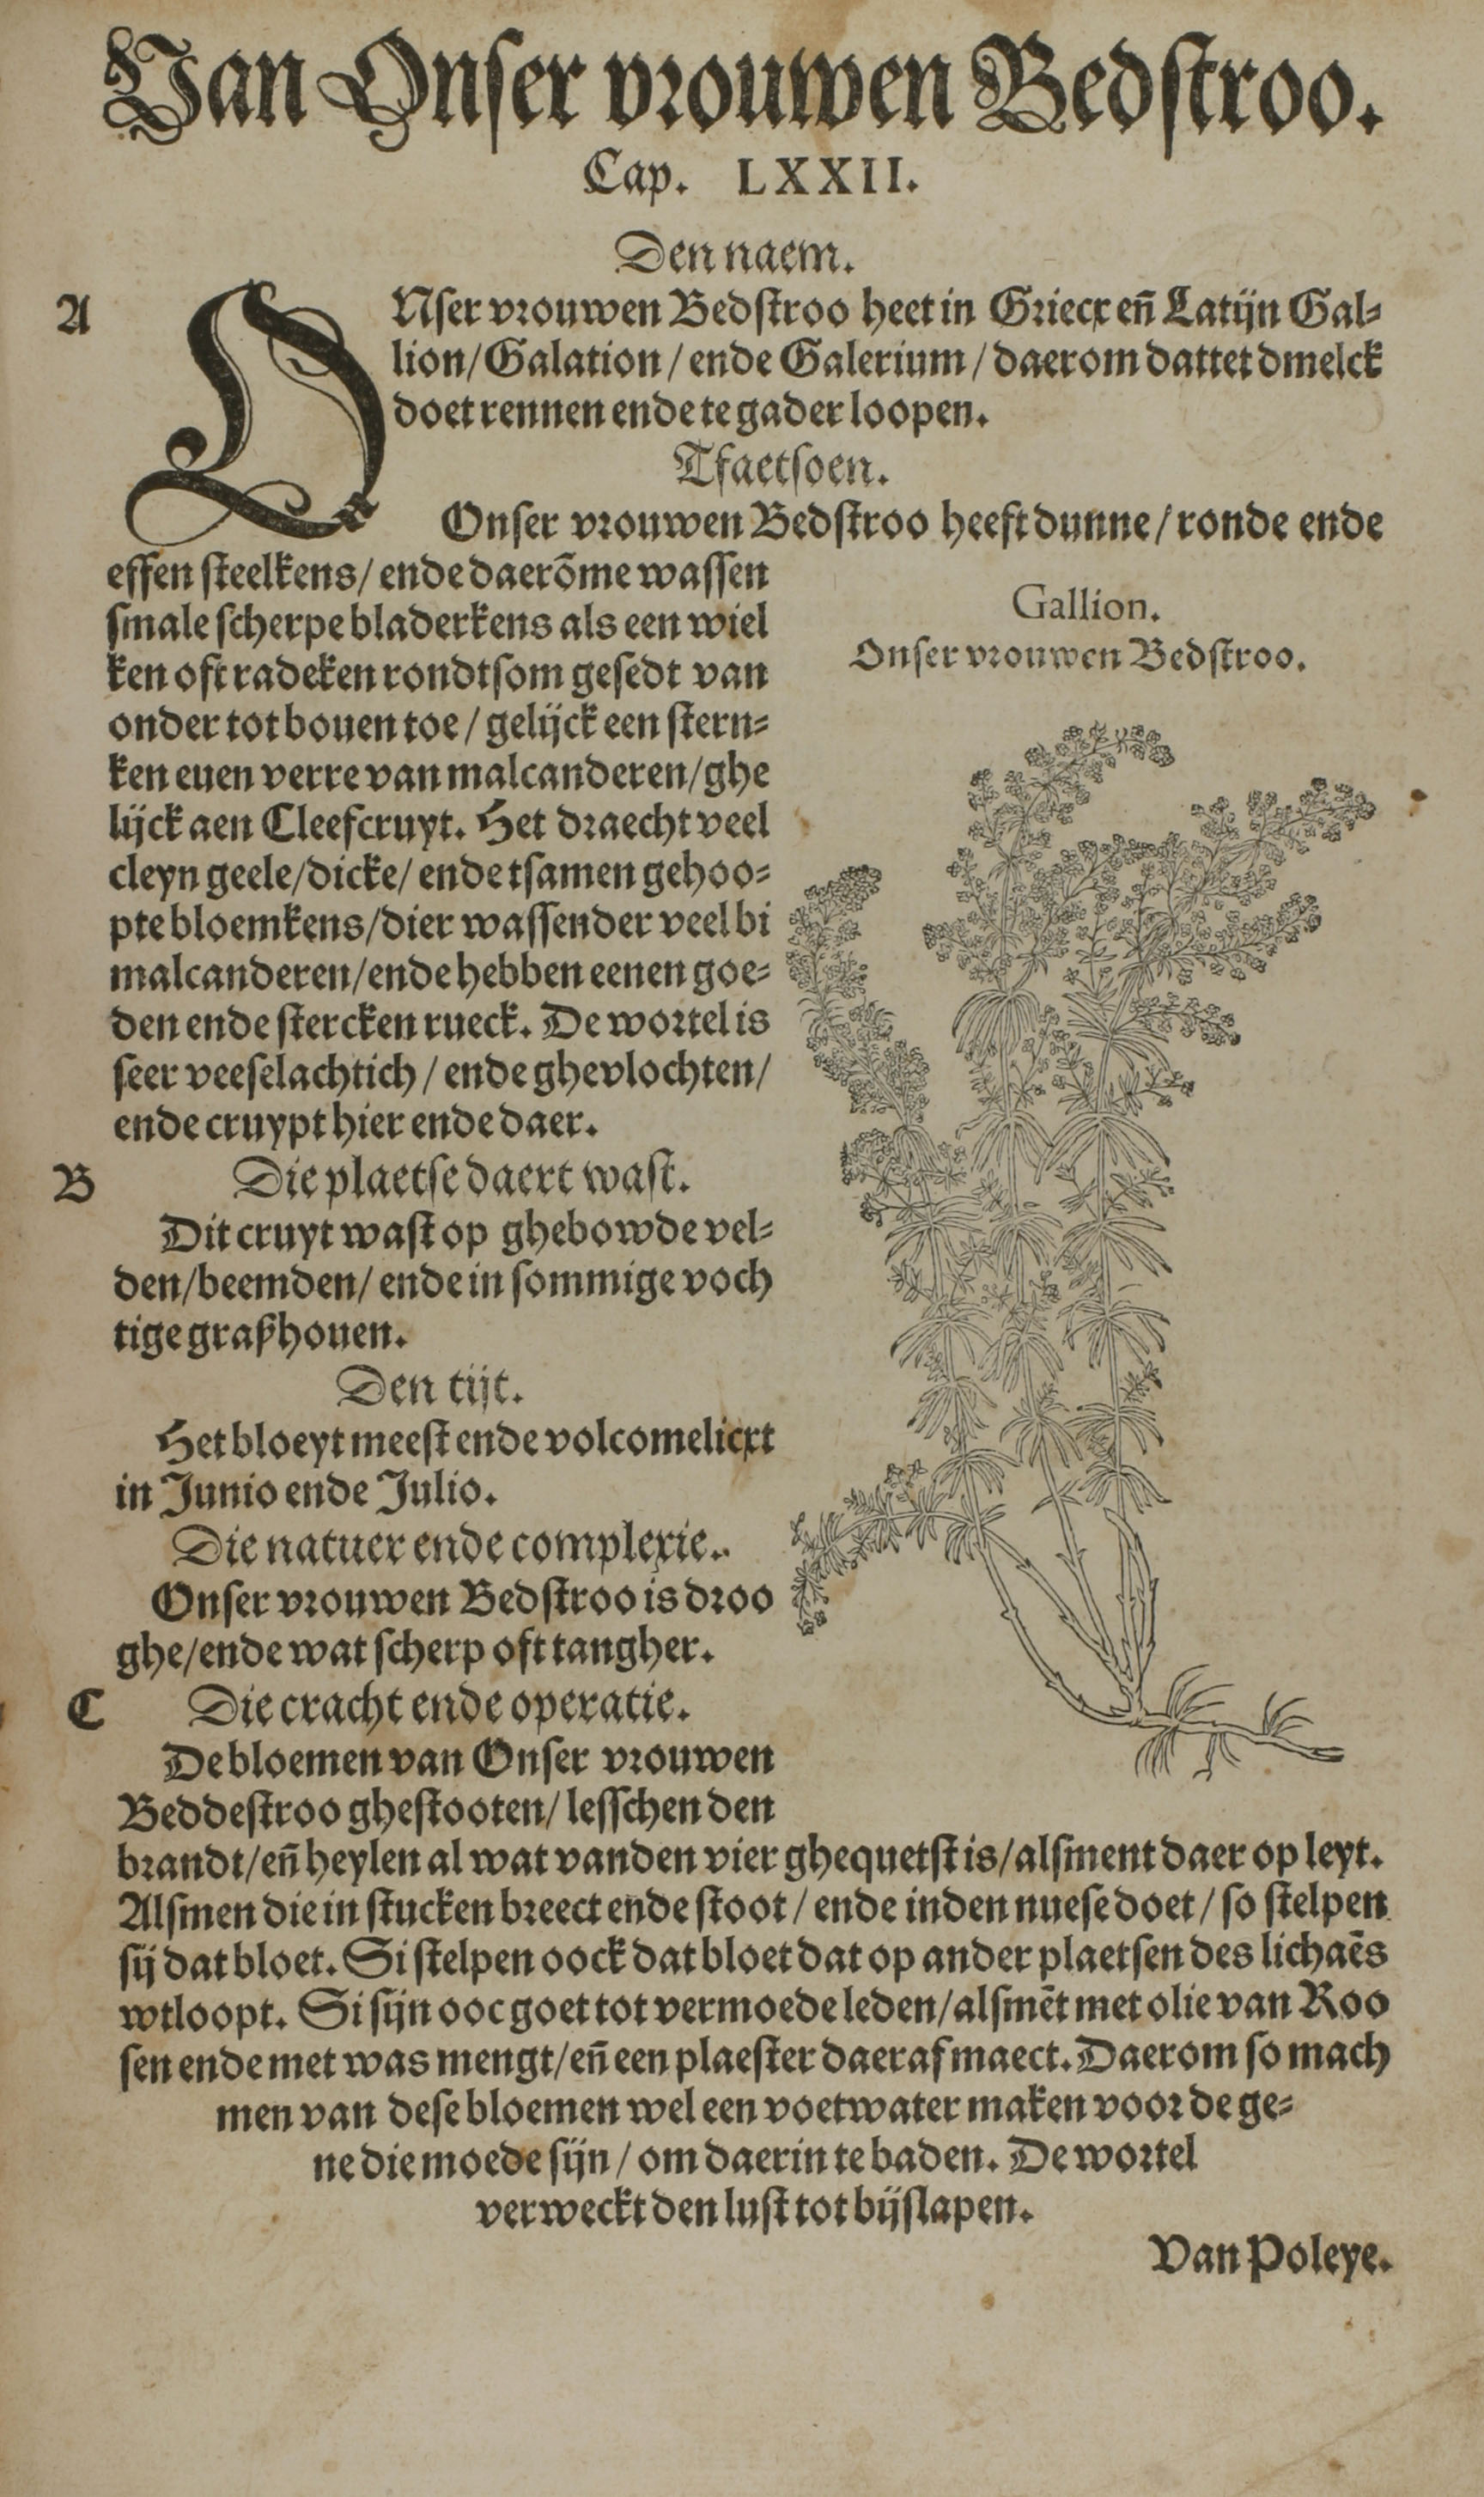 Van Onser vrouwen Bedstroo.
Cap. LXXII.
Den naem.
A
ONser vrouwen Bedstroo heet in Griecx eñ Latijn Gal-
lion/Galation/ende Galerium/daerom dattet dmelck
doet rennen ende te gader loopen.
Tfaetsoen.
Onser vrouwen Bedstroo heeft dunne/ronde ende
effen steelkens/ende daerõme wassen
smale scherpe bladerkens als een wiel
ken oft radeken rondtsom gesedt van
onder tot bouen toe/gelijck een stern-
ken euen verre van malcanderen/ghe
lijck aen Cleefcruyt. Het draecht veel
cleyn geele/dicke/ende tsamen gehoo-
pte bloemkens/dier wassender veel bi
malcanderen/ende hebben eenen goe-
den ende stercken rueck. De wortel is
seer veeselachtich/ende ghevlochten/
ende cruypt hier ende daer.
Gallion.
Onser vrouwen Bedstroo.
B
Die plaetse daert wast.
Dit cruyt wast op ghebowde vel-
den/beemden/ende in sommige voch
tige graßhouen.
Den tijt.
Het bloeyt meest ende volcomelicxt
in Junio ende Julio.
Die natuer ende complexie.
Onser vrouwen Bedstroo is droo
ghe/ende wat scherp oft tangher.
C
Die cracht ende operatie.
De bloemen van Onser vrouwen
Beddestroo ghestooten/lesschen den
brandt/eñ heylen al wat vanden vier ghequetst is/alsment daer op leyt.
Alsmen die in stucken breect ende stoot/ende inden nuese doet/so stelpen
sij dat bloet. Si stelpen oock dat bloet dat op ander plaetsen des lichaẽs
wtloopt. Si sijn ooc goet tot vermoede leden/alsmẽt met olie van Roo
sen ende met was mengt/eñ een plaester daeraf maect. Daerom so mach
men van dese bloemen wel een voetwater maken voor de ge-
ne die moede sijn/om daerin te baden. De wortel
verweckt den lust tot bijslapen.
Van Poleye.